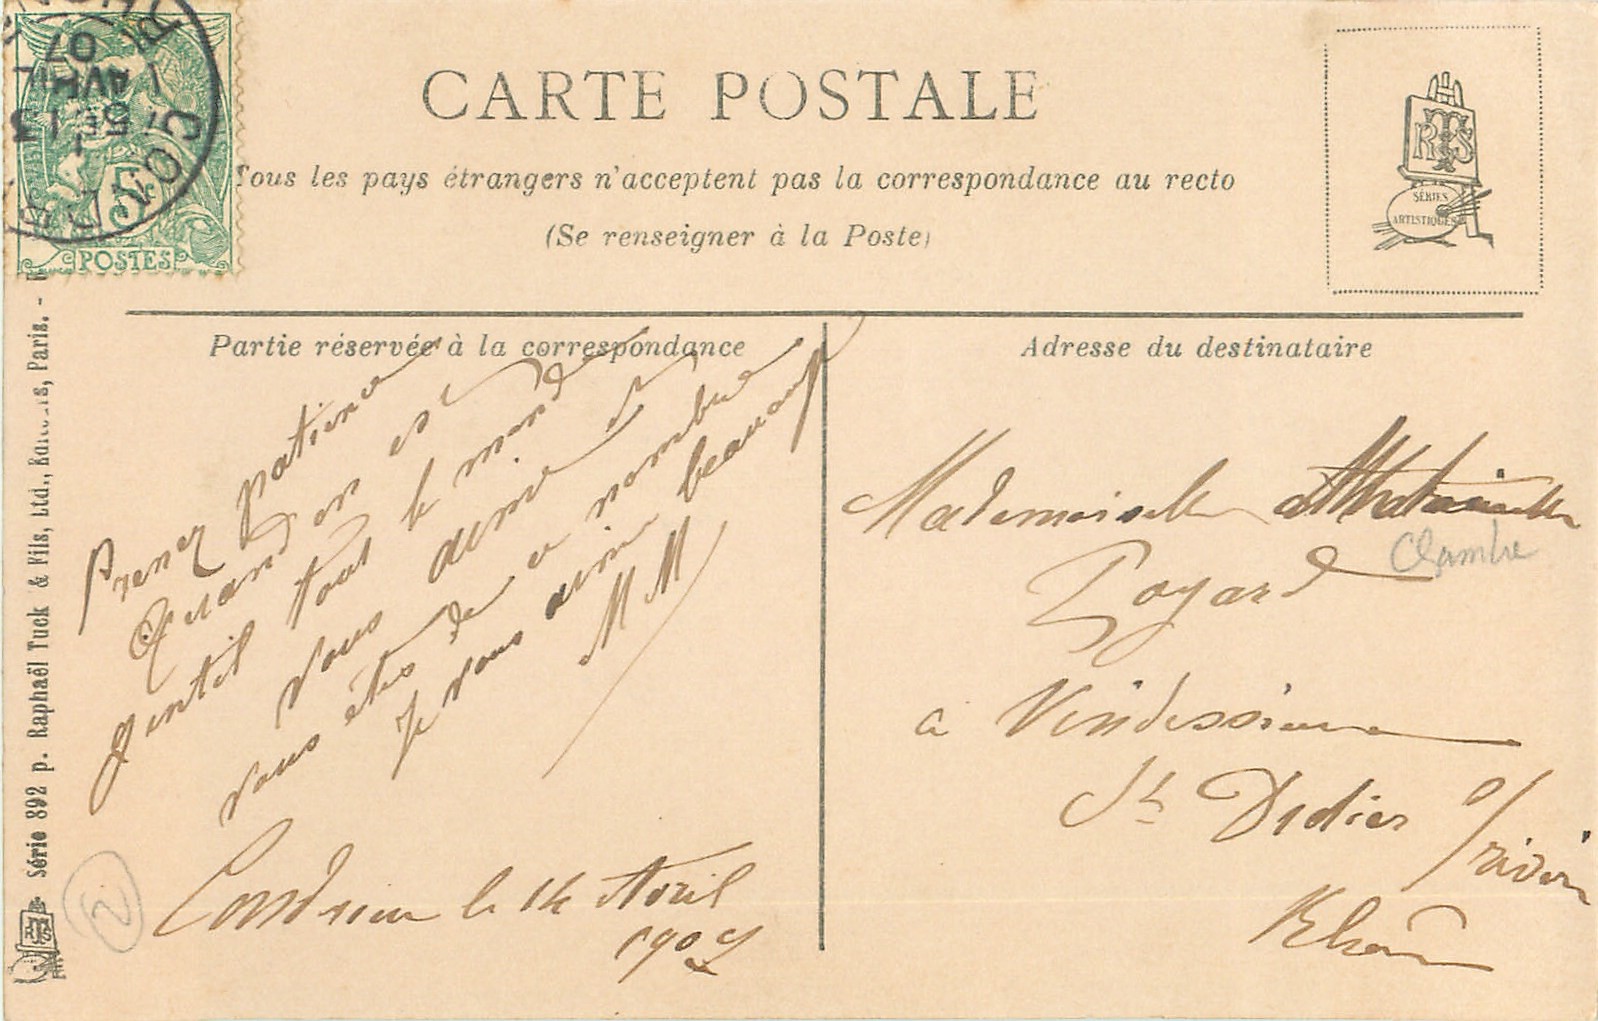 CARTE POSTALE
Tous les pays étrangers n'acceptent pas la correspondance au recto
(Se renseigner à la Poste)
RTS
SÉRIES
ARTISTIQUES
5
POSTES
13
AVRIL
07
Partie réservée à la correspondance
Prenez patience
Quand on est
gentil tout le monde
vous aime et
vous êtes de ce nombre
Je vous aime beaucoup
MM
Condrieu le 14 Avril
1907
Adresse du destinataire
Mademoiselle
Clambre
Poyard
a Vindessieux
St Didier s/ rivérie
Rhône
Série 892 p. Raphaël Tuck & Fils, Ltd., Paris. -
RTS
2